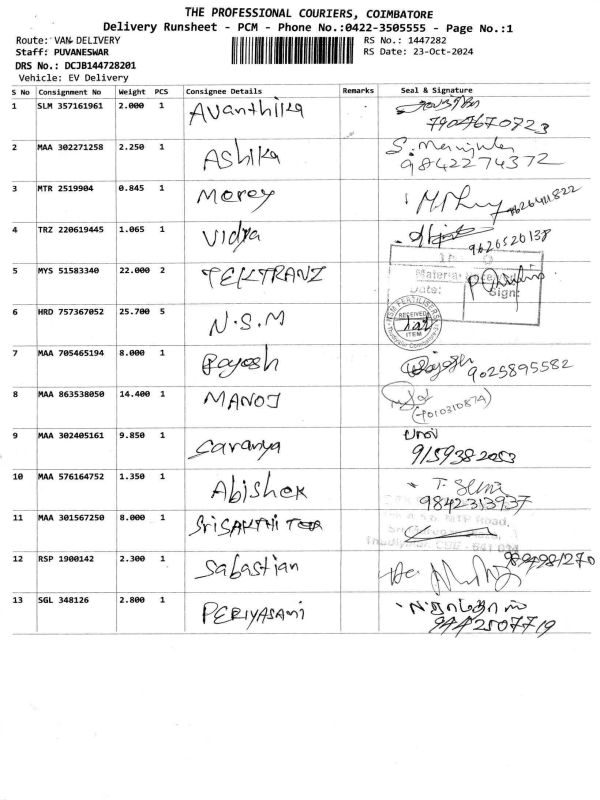 THE PROFESSIONAL COURIERS, COIMBATORE
Delivery Runsheet - PCM - Phone No.:0422-3505555 - Page No.:1
Route: VAN DELIVERY RS No.: 1447282
Staff: PUVANESWAR RS Date: 23-Oct-2024
DRS No.: DCJB144728201
Vehicle: EV Delivery
S No Consignment No Weight PCS Consignee Details Remarks Seal & Signature
1 SLM 357161961 2.000 1 Avanthika
7904670723
2 MAA 302271258 2.250 1 Ashika
9842274372
3 MTR 2519904 0.845 1
4 TRZ 220619445 1.065 1 Vidya
9626520138
5 MYS 51583340 22.000 2 TEKTRANZ
Material Received
Date: Sign:
6 HRD 757367052 25.700 5 N.S.M
NSM FERTILISERS
RECEIVED
ITEM
7 MAA 705465194 8.000 1
9025895582
8 MAA 863538050 14.400 1 MANOJ
(7010310874)
9 MAA 302405161 9.850 1 Saranya
9159382053
10 MAA 576164752 1.350 1 Abishek
9842313937
11 MAA 301567250 8.000 1 SriSAKTHI
MTP Road,
12 RSP 1900142 2.300 1 Sabastian
9894981270
13 SGL 348126 2.800 1 PERIYASAMI
9442507719